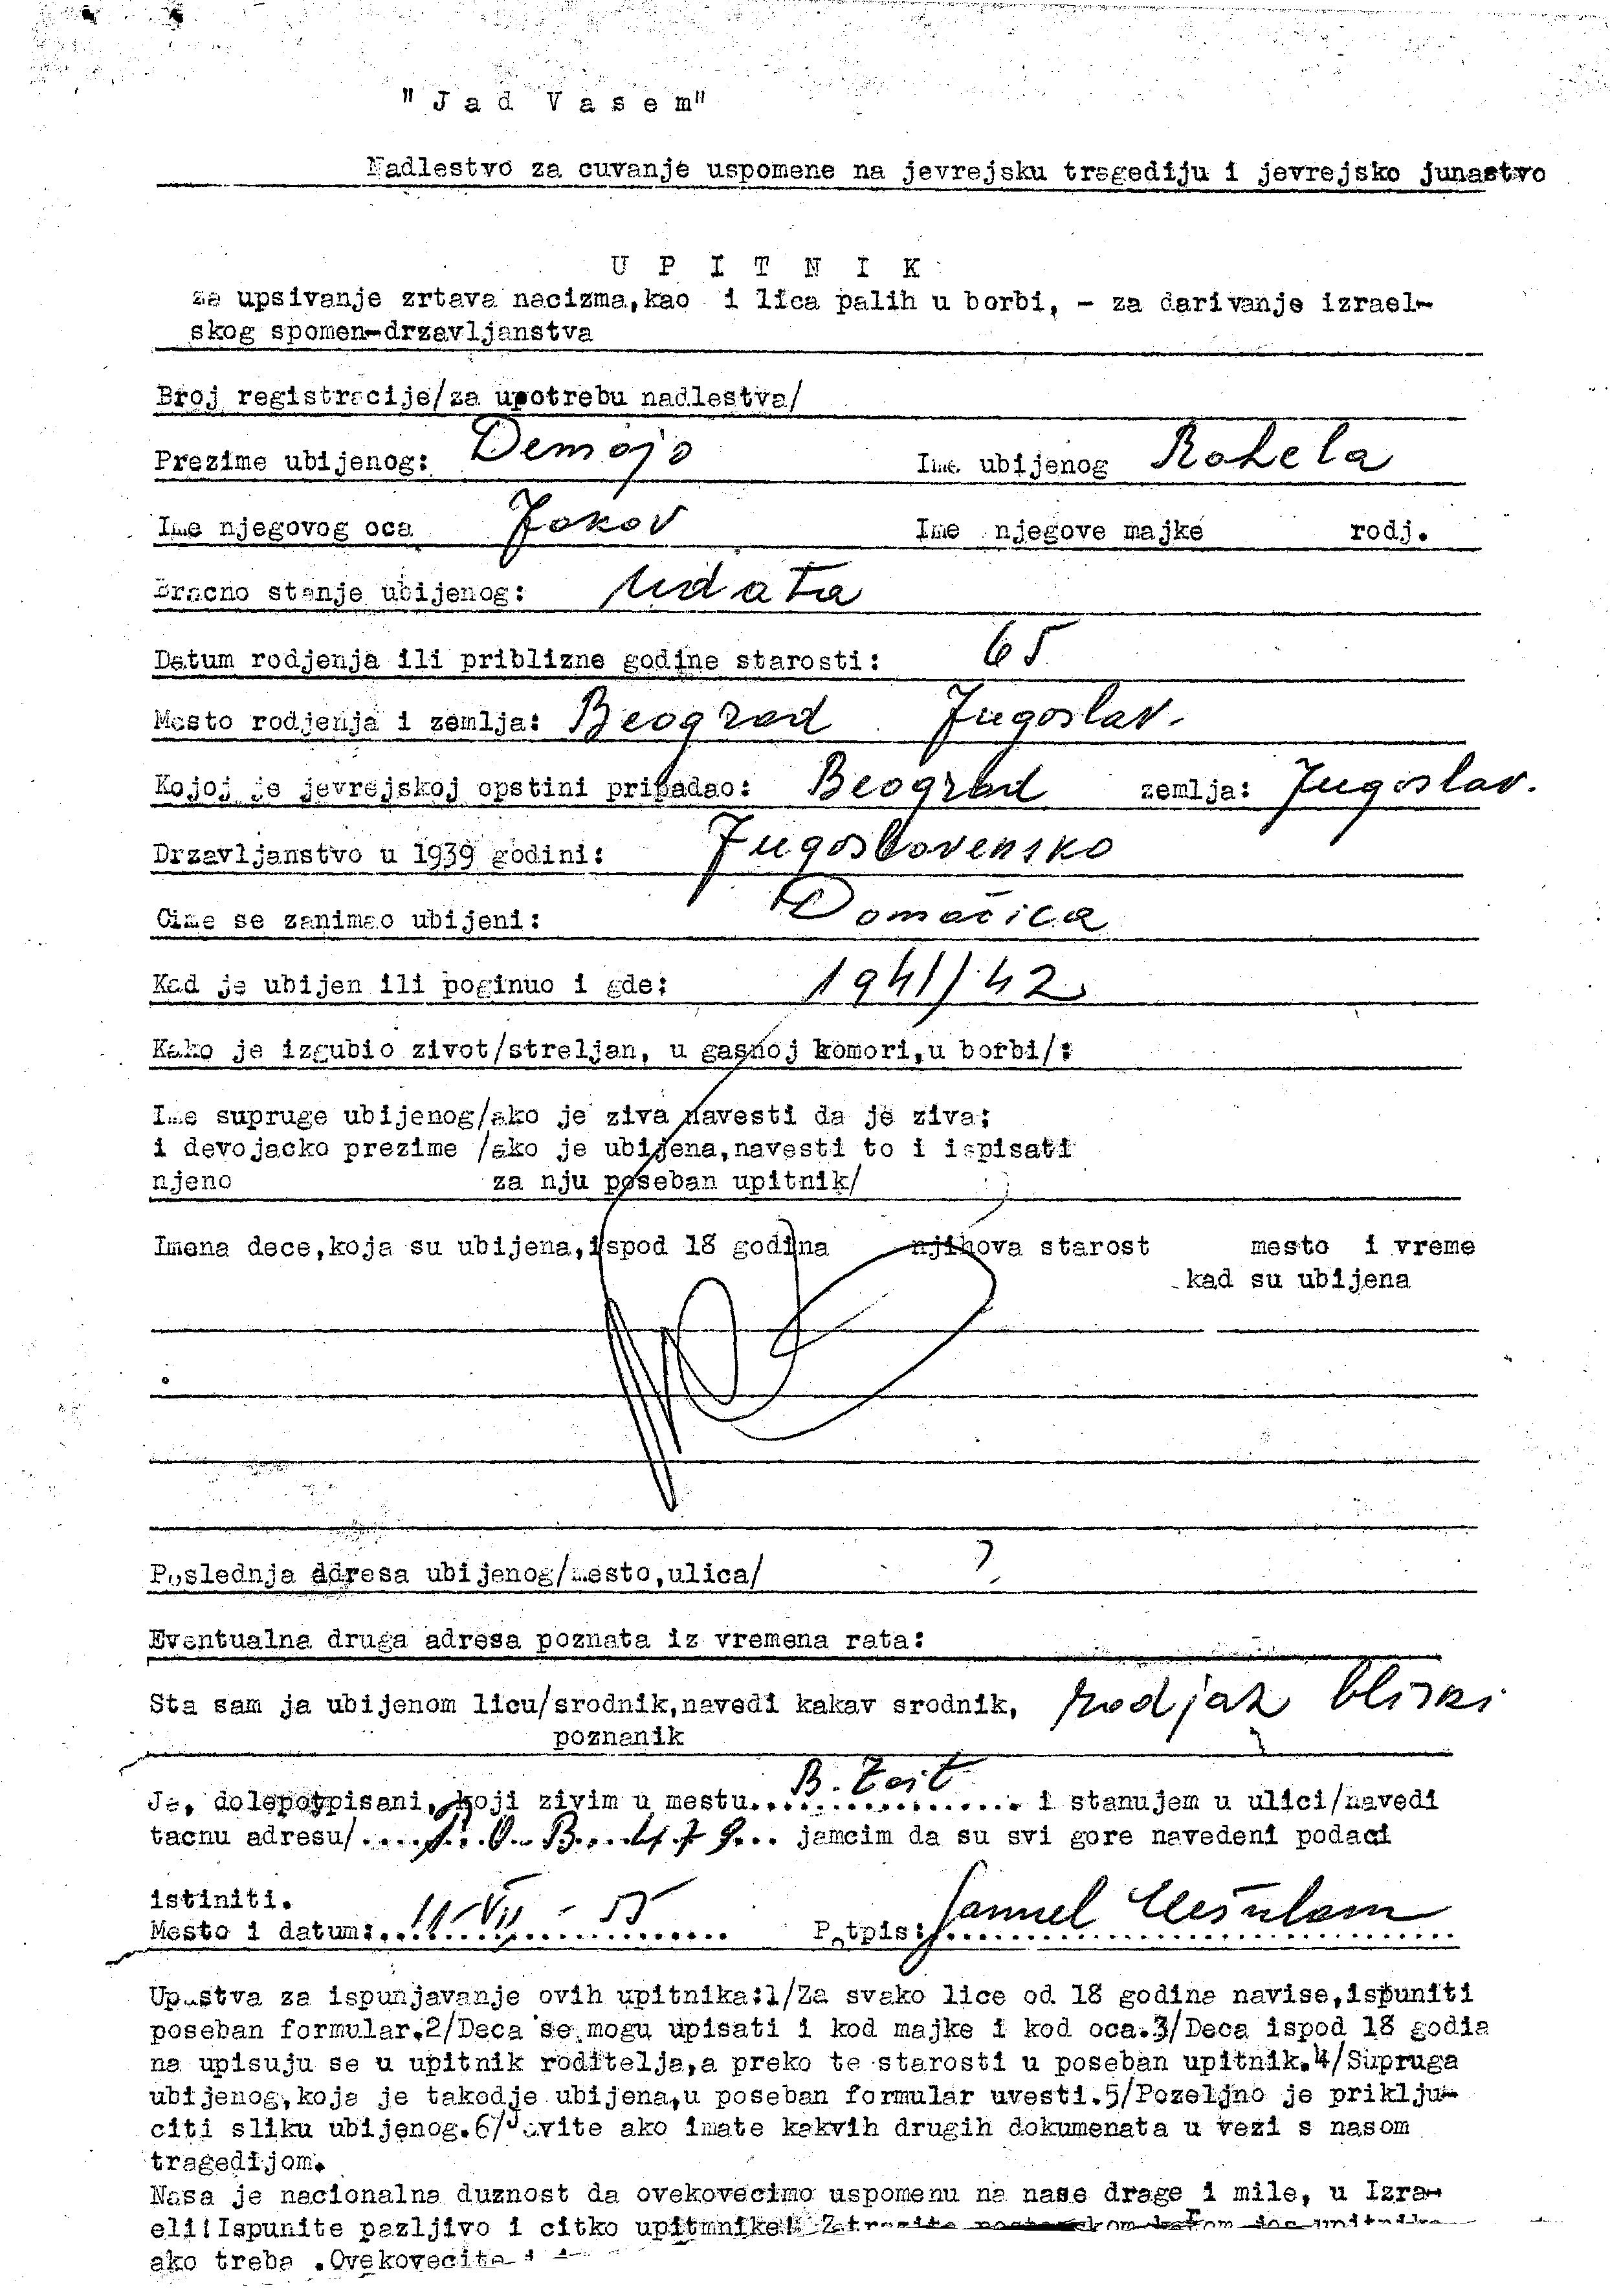 "Jad Vasem"
Nadlestvo za cuvanje uspomene na jevrejsku tragediju i jevrejsko junastvo
UPITNIK
za upsivanje zrtava nacizma,kao i lica palih u borbi, - za darivanje izrael-
skog spomen-drzavljanstva
Broj registracije/za upotrebu nadlestva/
Prezime ubijenog: Demajo Ime ubijenog Rahela
Ime njegovog oca Jakov Ime njegove majke rodj.
Bracno stanje ubijenog: Udata
Datum rodjenja ili priblizne godine starosti: 65
Mesto rodjenja i zemlja: Beograd Jugoslav.
Kojoj je jevrejskoj opstini pripadao: Beograd zemlja: Jugoslav.
Drzavljanstvo u 1939 godini: Jugoslovensko
Cime se zanimao ubijeni: Domaćica
Kad je ubijen ili poginuo i gde: 1941/42
Kako je izgubio zivot/streljan, u gasnoj komori,u borbi/:
Ime supruge ubijenog/ako je ziva navesti da je ziva;
i devojacko prezime /ako je ubijena,navesti to i ispisati
njeno za nju poseban upitnik/
Imena dece,koja su ubijena,ispod 18 godina njihova starost mesto i vreme
kad su ubijena
Poslednja adresa ubijenog/mesto,ulica/ ?
Eventualna druga adresa poznata iz vremena rata:
Sta sam ja ubijenom licu/srodnik,navedi kakav srodnik, rodjak bliski
poznanik
Ja, dolepotpisani, koji zivim u mestu.................... i stanujem u ulici/navedi
tacnu adresu/.... P.O.B. 479... jamcim da su svi gore navedeni podaci
istiniti.
Mesto i datum: 11-VII-55 Potpis: Samuel Mešulam
Upustva za ispunjavanje ovih upitnika:1/Za svako lice od 18 godina navise,ispuniti
poseban formular.2/Deca se mogu upisati i kod majke i kod oca.3/Deca ispod 18 godia
na upisuju se u upitnik roditelja,a preko te starosti u poseban upitnik.4/Supruga
ubijenog,koja je takodje ubijena,u poseban formular uvesti.5/Pozeljno je priklju-
citi sliku ubijenog.6/Javite ako imate kakvih drugih dokumenata u vezi s nasom
tragedijom.
Nasa je nacionalna duznost da ovekovecimo uspomenu na nase drage i mile, u Izra-
eli!Ispunite pazljivo i citko upitnnike!
ako treba .Ovekovecite